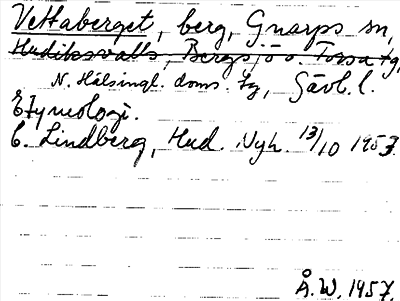 Vettaberget, berg, Gnarps sn,
Hudiksvalls, Bergsjö o. Torsa tg,
N. Hälsingl. doms. tg, Gävl. l.
Etymologi.
E. Lindberg, Hud. Nyh. 13/10 1953.
Å. W. 1957.